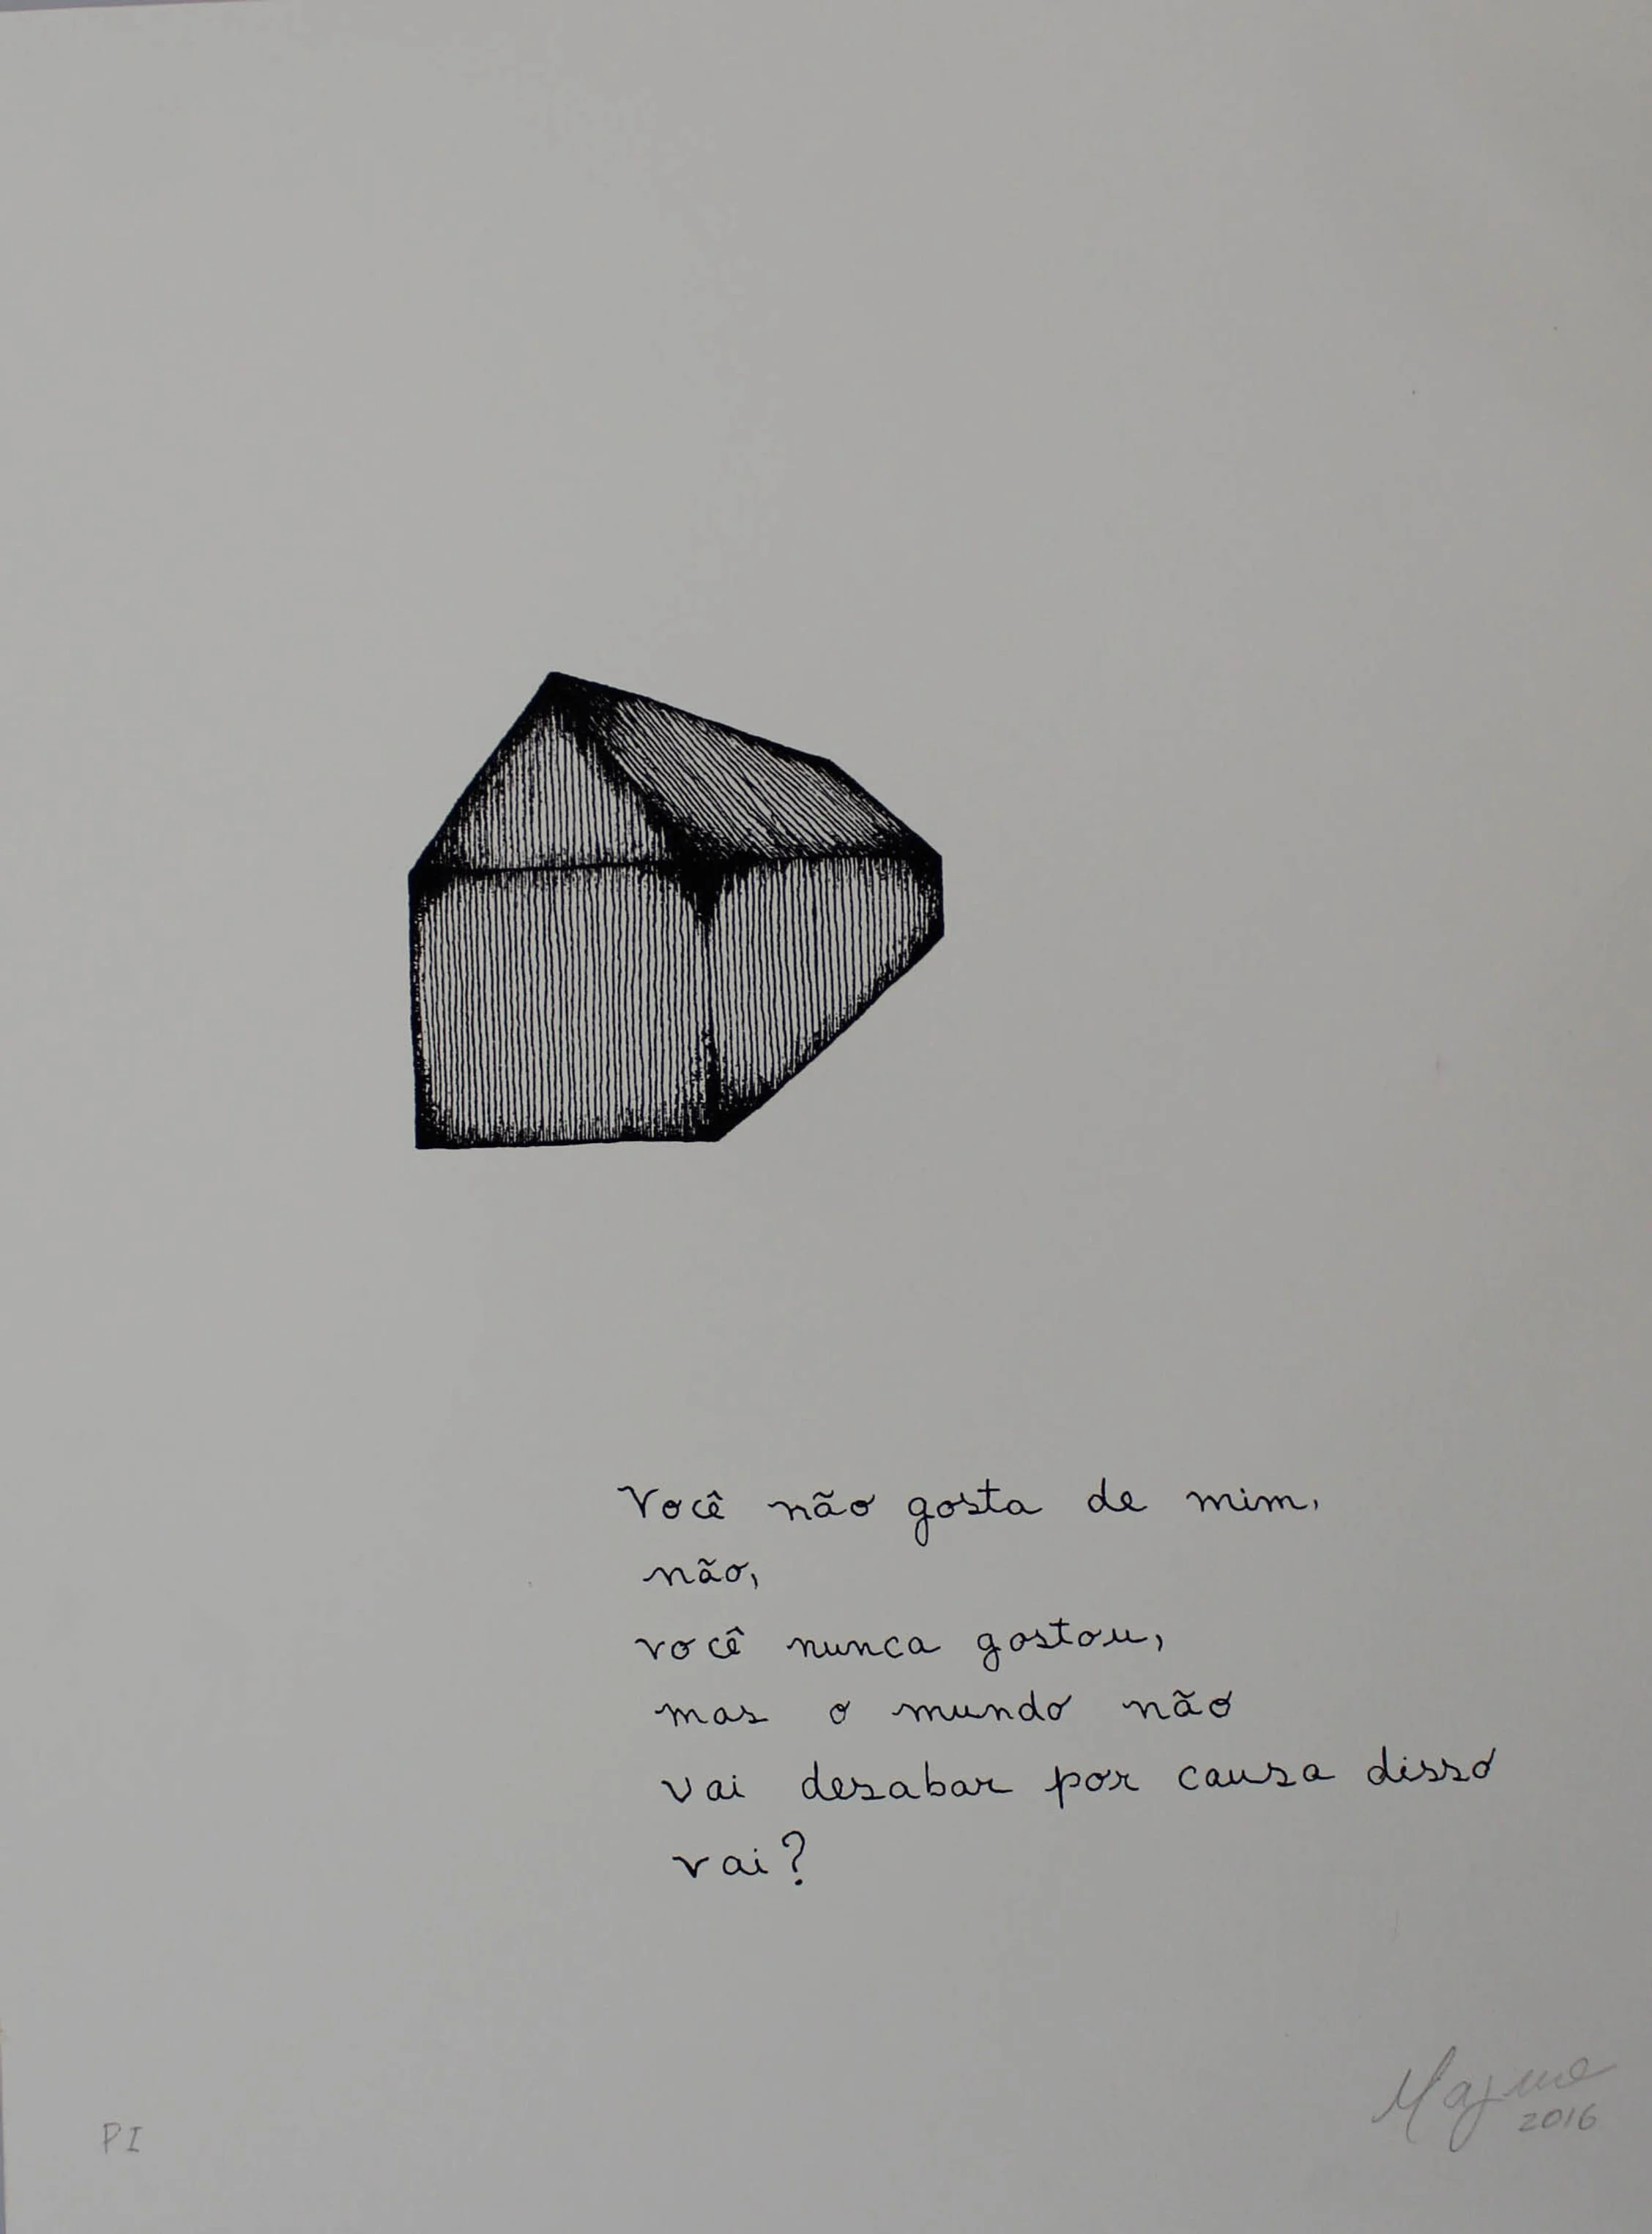 Você não gosta de mim,
não,
você nunca gostou,
mas o mundo não
vai desabar por causa disso
vai?
PI
2016